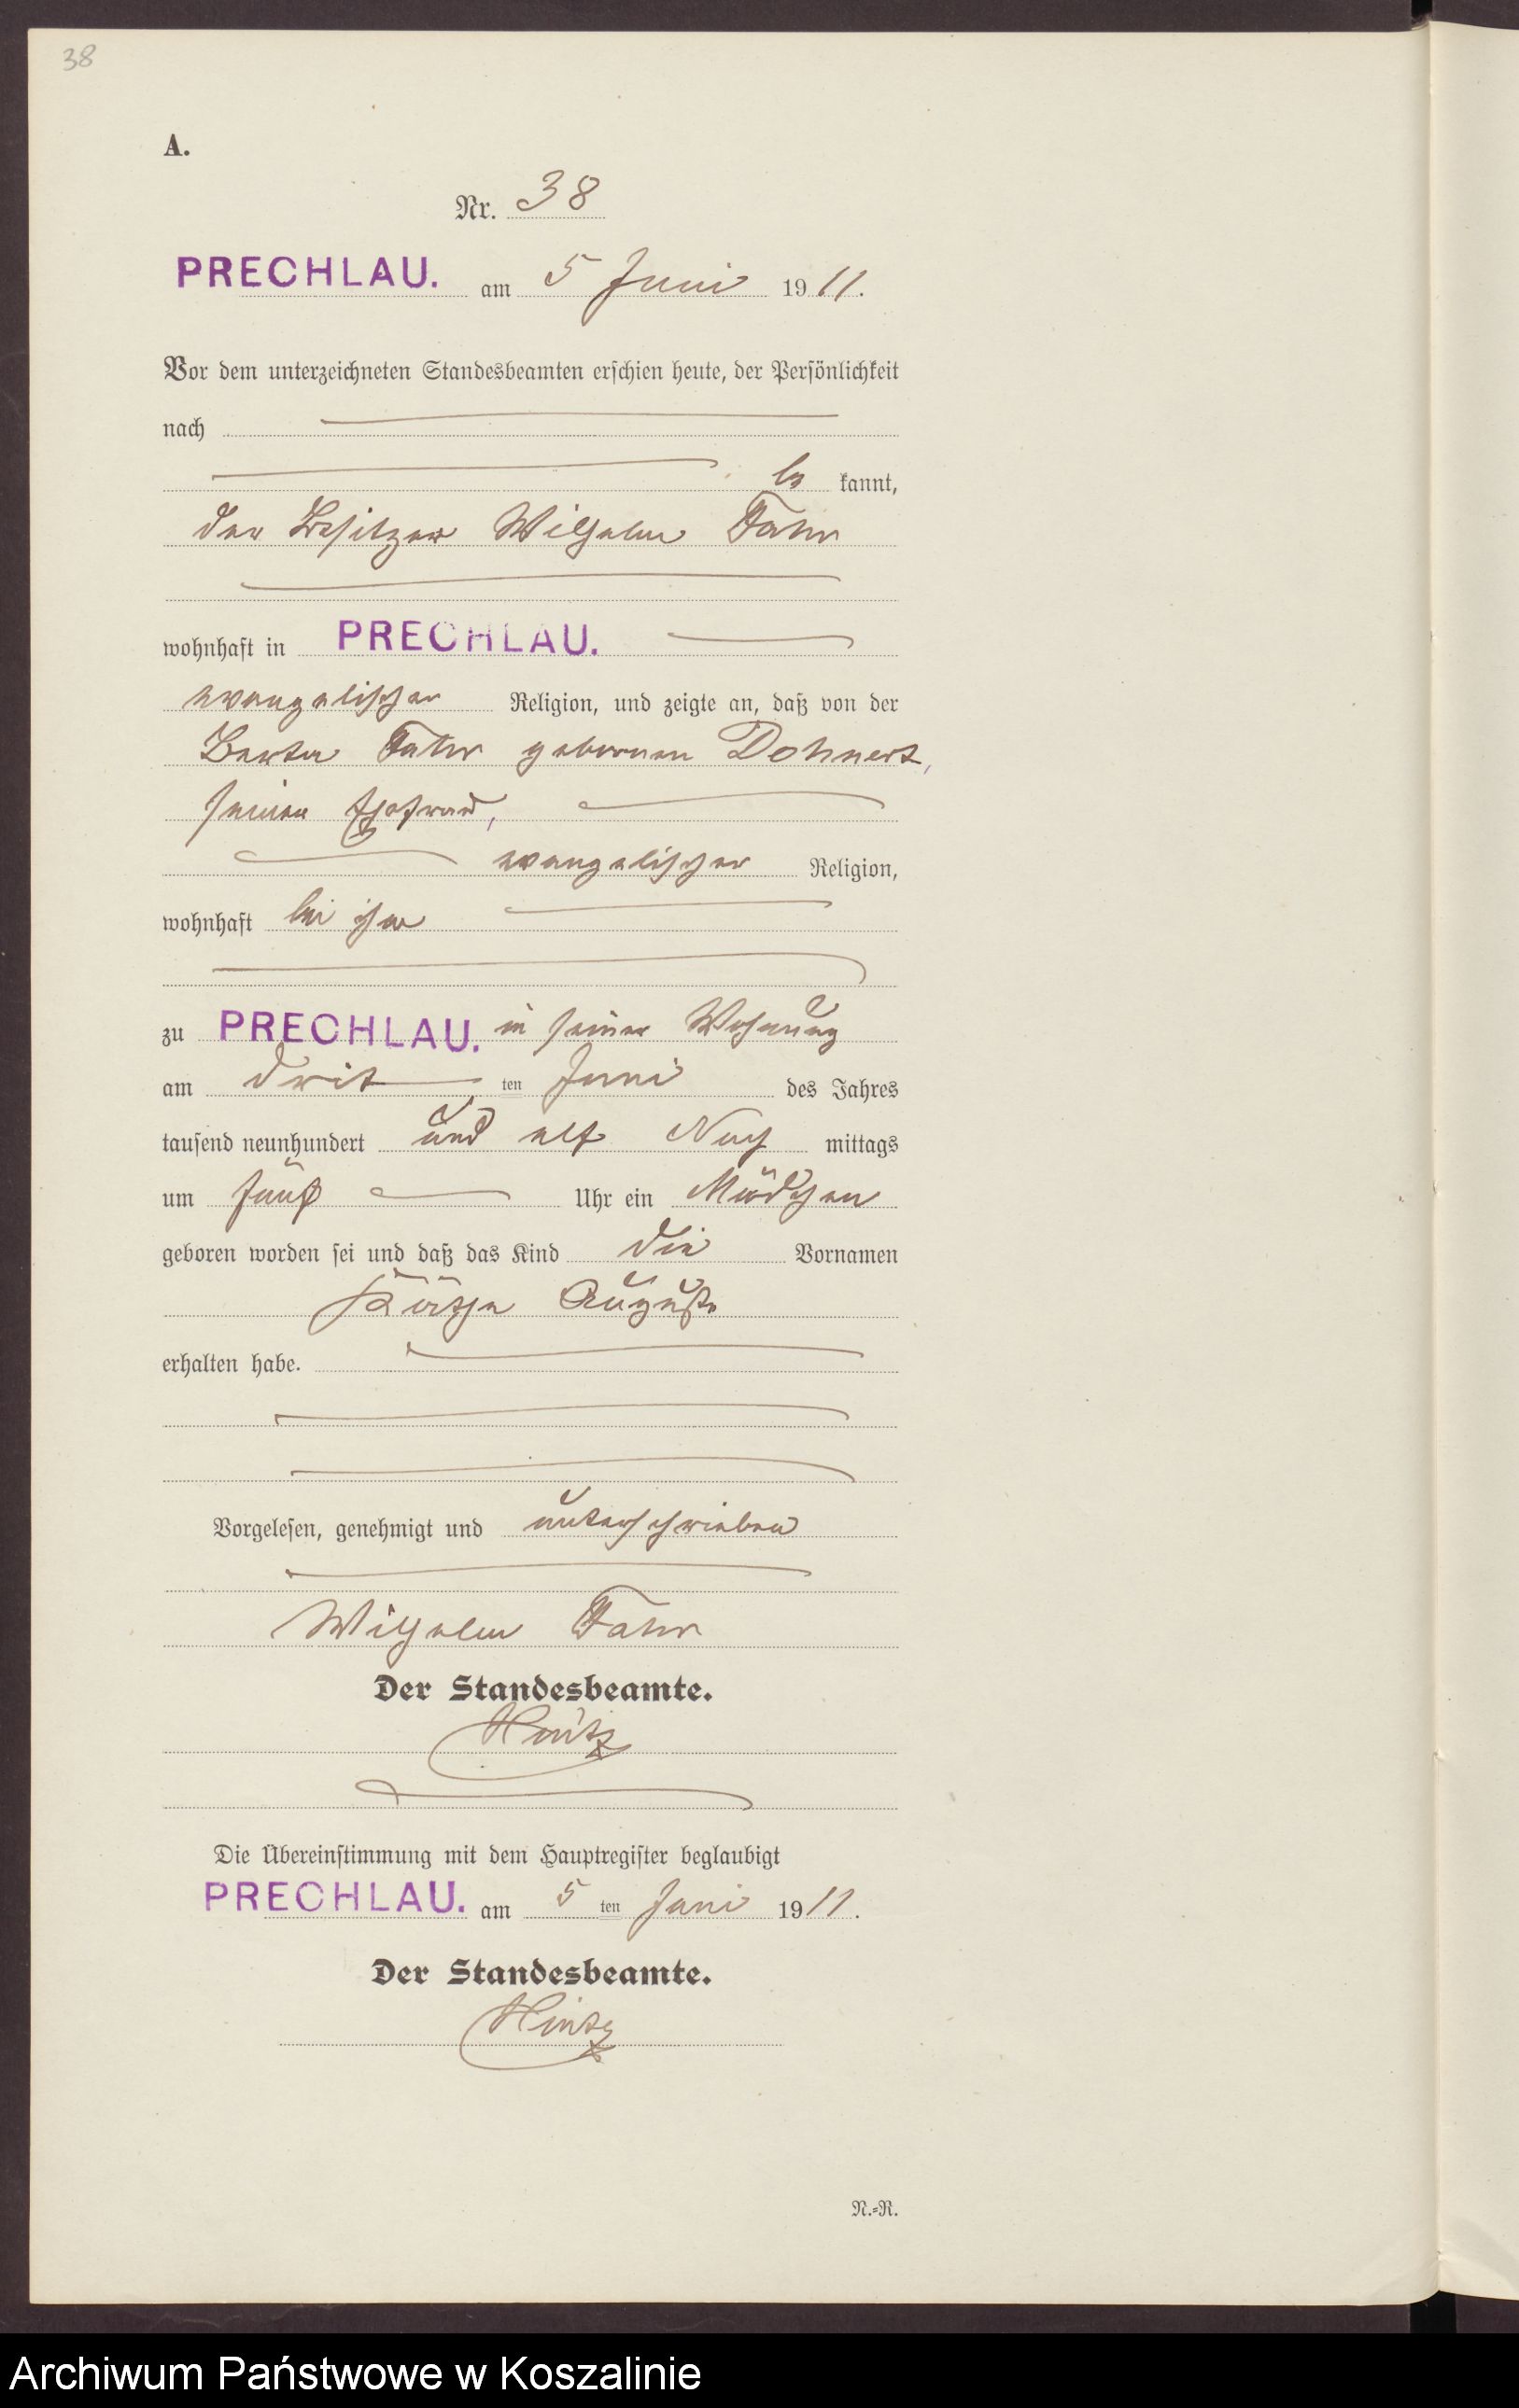 38
A.
Nr. 38
PRECHLAU. am 5 Juni 1911.
Vor dem unterzeichneten Standesbeamten erschien heute, der Persönlichkeit
nach
be kannt,
der Besitzer Wilhelm Fahr
wohnhaft in PRECHLAU.
evangelischer Religion, und zeigte an, daß von der
Berta Fahr gebornen Dohnert,
seiner Ehefrau,
evangelischer Religion,
wohnhaft bei ihm
zu PRECHLAU. in seiner Wohnung
am drit ten Juni des Jahres
tausend neunhundert und elf Nach mittags
um fünf Uhr ein Mädchen
geboren worden sei und daß das Kind die Vornamen
Käthe Auguste
erhalten habe.
Vorgelesen, genehmigt und unterschrieben
Wilhelm Fahr
Der Standesbeamte.
Hintz
Die Übereinstimmung mit dem Hauptregister beglaubigt
PRECHLAU. am 5 ten Juni 1911.
Der Standesbeamte.
Hintz
N.=R.
Archiwum Państwowe w Koszalinie